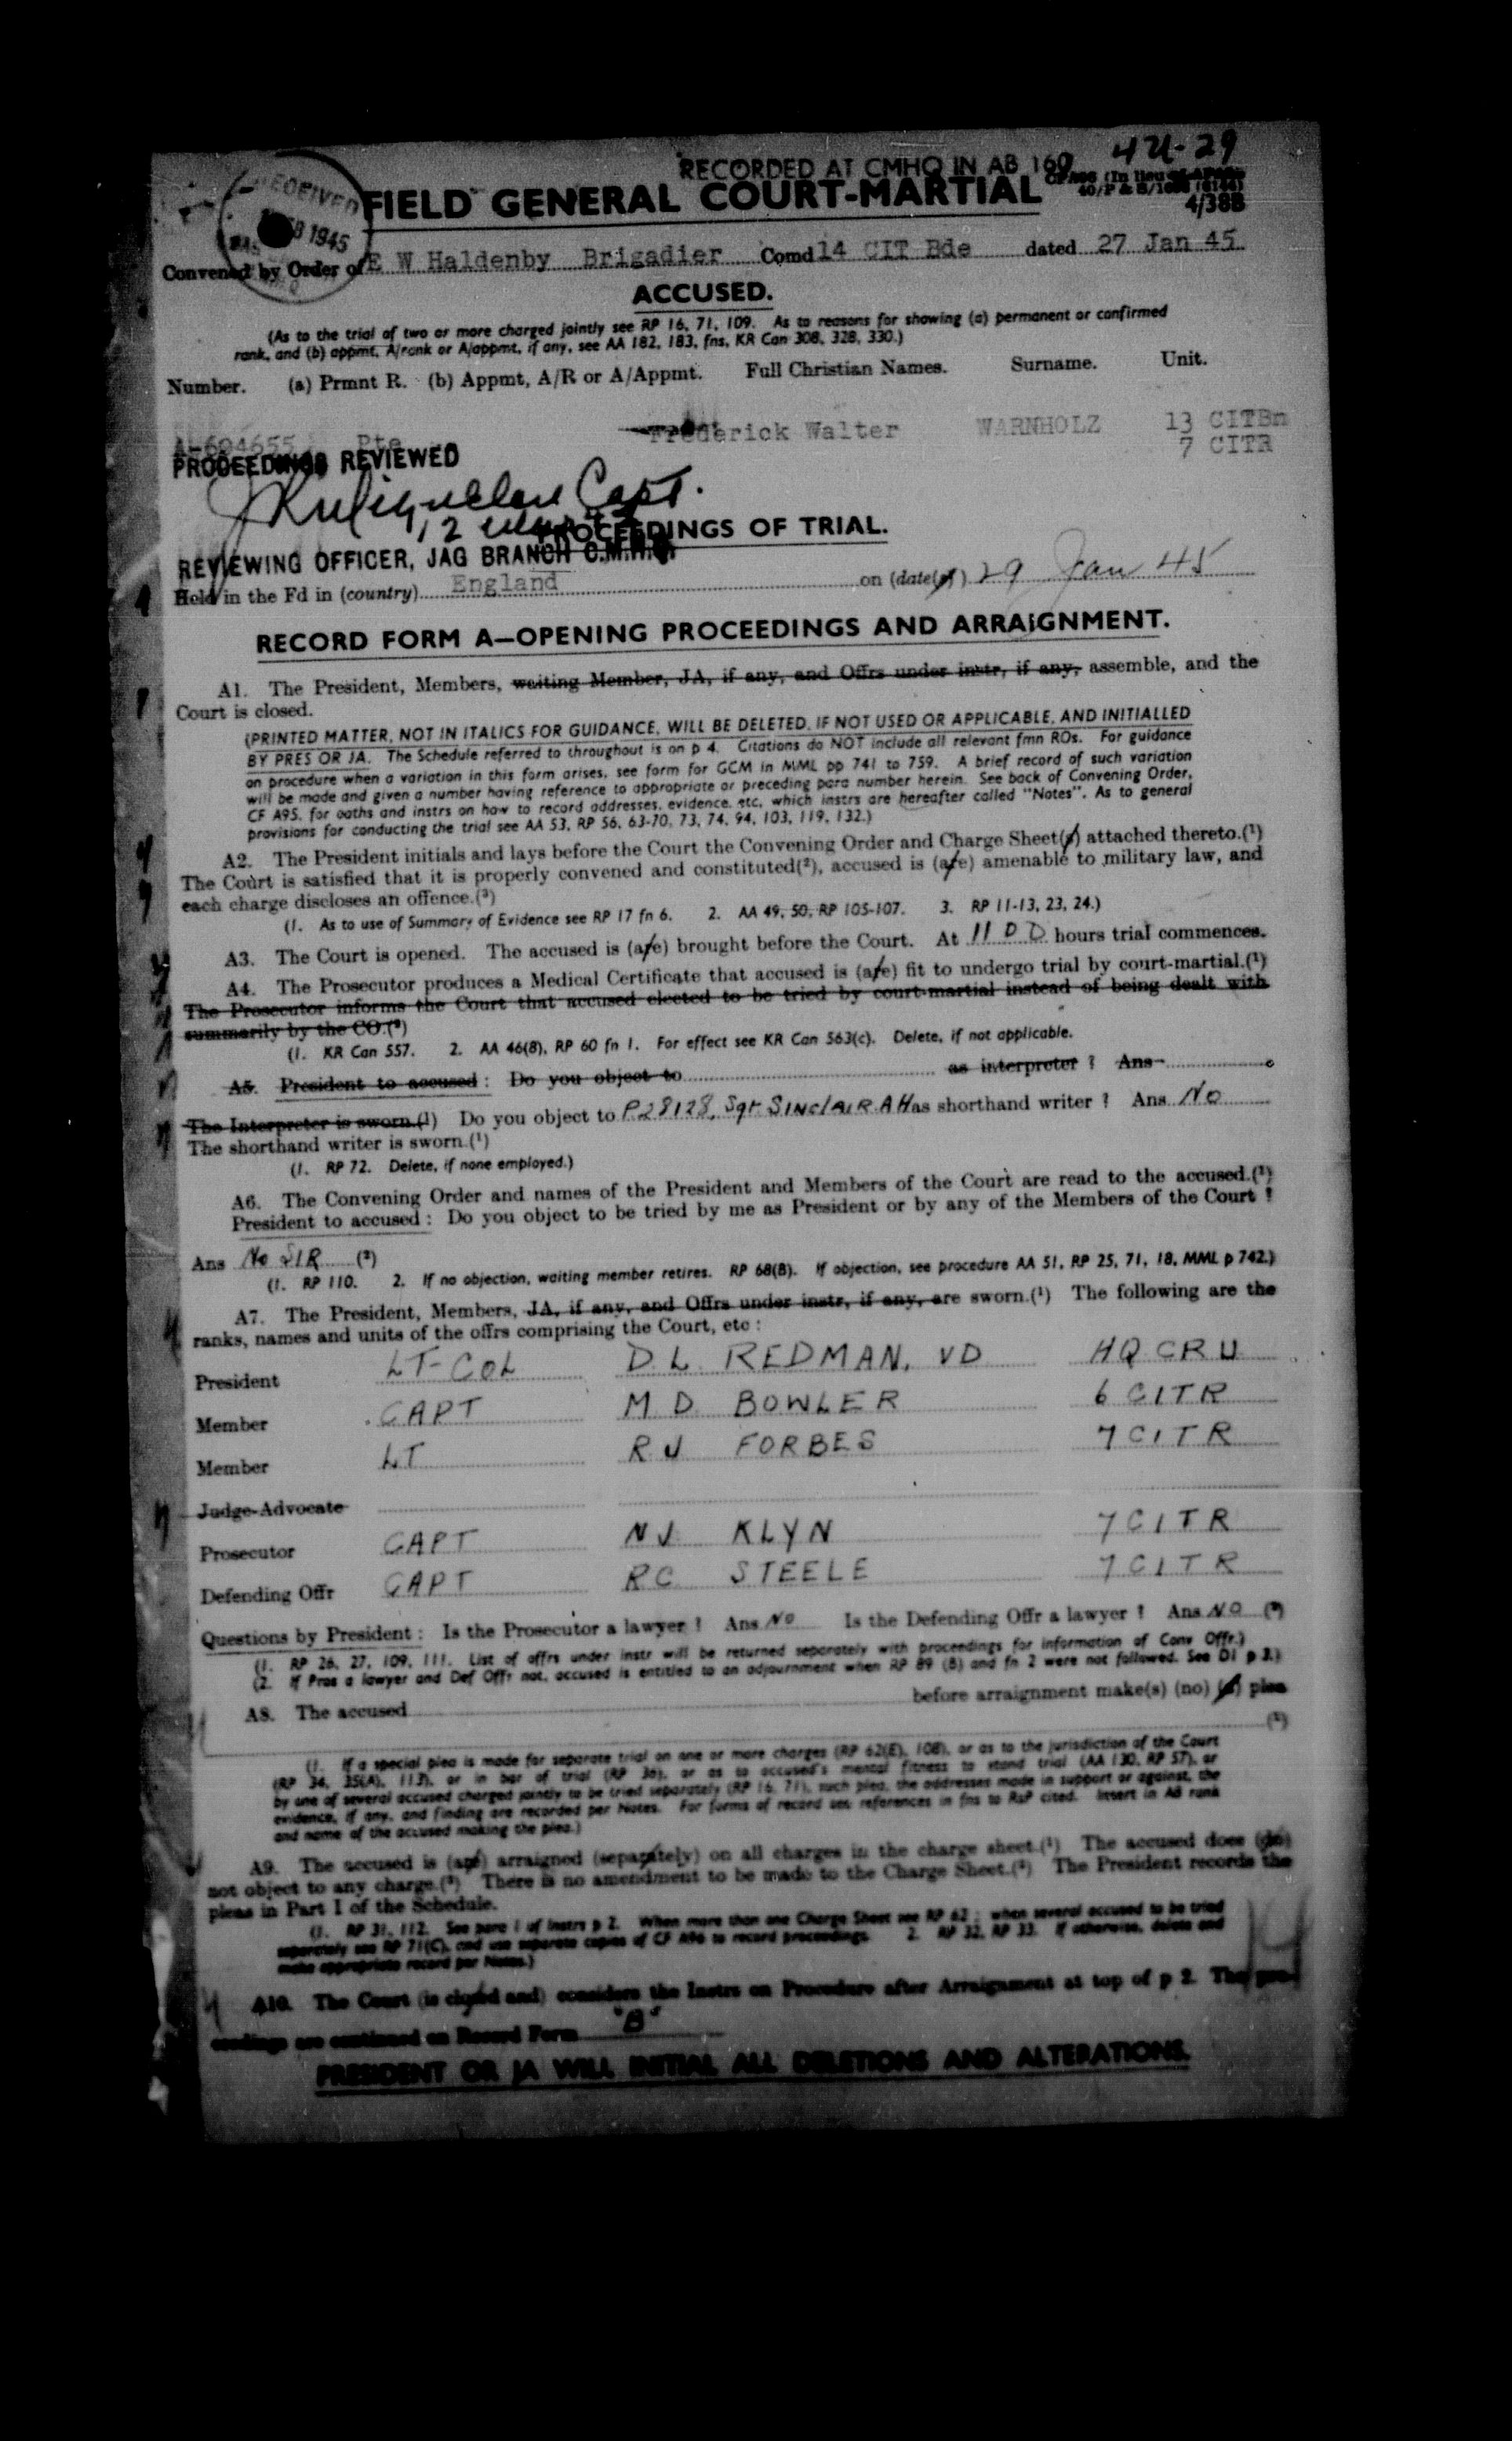 RECORDED AT CMHQ IN AB 160 44-29
RECEIVED
1945
FIELD GENERAL COURT-MARTIAL
40/P & S/
4/388
Convened by Order of E W Haldenby Brigadier Comd 14 CIT Bde dated 27 Jan 45
ACCUSED.
(As to the trial of two or more charged jointly see RP 16, 71, 109. As to reasons for showing (a) permanent or confirmed
rank, and (b) appmt, A/rank or A/appmt, if any, see AA 182, 183, fns, KR Can 308, 328, 330.)
Number. (a) Prmnt R. (b) Appmt, A/R or A/Appmt. Full Christian Names. Surname. Unit.
A-604655 Pte Frederick Walter WARNHOLZ 13 CITBn
7 CITR
PROCEEDINGS REVIEWED
Capt.
12
PROCEEDINGS OF TRIAL.
REVIEWING OFFICER, JAG BRANCH C.M.H.Q.
Held in the Fd in (country) England on (date(s)) 29 Jan 45
RECORD FORM A—OPENING PROCEEDINGS AND ARRAIGNMENT.
A1. The President, Members, waiting Member, JA, if any, and Offrs under instr, if any, assemble, and the
Court is closed.
(PRINTED MATTER, NOT IN ITALICS FOR GUIDANCE, WILL BE DELETED, IF NOT USED OR APPLICABLE, AND INITIALLED
BY PRES OR JA. The Schedule referred to throughout is on p 4. Citations do NOT include all relevant fmn ROs. For guidance
on procedure when a variation in this form arises, see form for GCM in MML pp 741 to 759. A brief record of such variation
will be made and given a number having reference to appropriate or preceding para number herein. See back of Convening Order,
CF A95, for oaths and instrs on how to record addresses, evidence, etc, which instrs are hereafter called "Notes". As to general
provisions for conducting the trial see AA 53, RP 56, 63-70, 73, 74, 94, 103, 119, 132.)
A2. The President initials and lays before the Court the Convening Order and Charge Sheet(s) attached thereto.(¹)
The Court is satisfied that it is properly convened and constituted(²), accused is (are) amenable to military law, and
each charge discloses an offence.(³)
(1. As to use of Summary of Evidence see RP 17 fn 6. 2. AA 49, 50, RP 105-107. 3. RP 11-13, 23, 24.)
A3. The Court is opened. The accused is (are) brought before the Court. At 1100 hours trial commences.
A4. The Prosecutor produces a Medical Certificate that accused is (are) fit to undergo trial by court-martial.(¹)
The Prosecutor informs the Court that accused elected to be tried by court-martial instead of being dealt with
summarily by the CO.(²)
(1. KR Can 557. 2. AA 46(8), RP 60 fn 1. For effect see KR Can 563(c). Delete, if not applicable.
A5. President to accused : Do you object to as interpreter ? Ans
The Interpreter is sworn.(¹) Do you object to P28128, Sgt SINCLAIR A H as shorthand writer ? Ans No
The shorthand writer is sworn.(¹)
(1. RP 72. Delete, if none employed.)
A6. The Convening Order and names of the President and Members of the Court are read to the accused.(¹)
President to accused : Do you object to be tried by me as President or by any of the Members of the Court ?
Ans No SIR (²)
(1. RP 110. 2. If no objection, waiting member retires. RP 68(B). If objection, see procedure AA 51, RP 25, 71, 18, MML p 742.)
A7. The President, Members, JA, if any, and Offrs under instr, if any, are sworn.(¹) The following are the
ranks, names and units of the offrs comprising the Court, etc :
President LT-COL D L REDMAN, VD HQ CRU
Member CAPT M D BOWLER 6 CITR
Member LT R J FORBES 7 CITR
Judge-Advocate
Prosecutor CAPT N J KLYN 7 CITR
Defending Offr CAPT R C STEELE 7 CITR
Questions by President : Is the Prosecutor a lawyer ? Ans No Is the Defending Offr a lawyer ? Ans NO (²)
(1. RP 26, 27, 109, 111. List of offrs under instr will be returned separately with proceedings for information of Conv Offr.)
(2. If Pros a lawyer and Def Offr not, accused is entitled to an adjournment when RP 89 (B) and fn 2 were not followed. See D1 p 3.)
A8. The accused before arraignment make(s) (no) (a) plea
(¹)
(1. If a special plea is made for separate trial on one or more charges (RP 62(E), 108), or as to the jurisdiction of the Court
(RP 34, 35(A), 113), or in bar of trial (RP 36), or as to accused's mental fitness to stand trial (AA 130, RP 57), or
by one of several accused charged jointly to be tried separately (RP 16, 71), such plea, the addresses made in support or against, the
evidence, if any, and finding are recorded per Notes. For forms of record see references in fns to RsP cited. Insert in A8 rank
and name of the accused making the plea.)
A9. The accused is (are) arraigned (separately) on all charges in the charge sheet.(¹) The accused does (do)
not object to any charge.(²) There is no amendment to be made to the Charge Sheet.(²) The President records the
pleas in Part I of the Schedule.
(1. RP 31, 112. See para 1 of Instrs p 2. When more than one Charge Sheet see RP 62 ; when several accused to be tried
separately see RP 71(C), and use separate copies of CF A96 to record proceedings. 2. RP 32, RP 33. If otherwise, delete and
make appropriate record per Notes.)
A10. The Court (is closed and) considers the Instrs on Procedure after Arraignment at top of p 2. The pro-
ceedings are continued on Record Form "B"
PRESIDENT OR JA WILL INITIAL ALL DELETIONS AND ALTERATIONS.